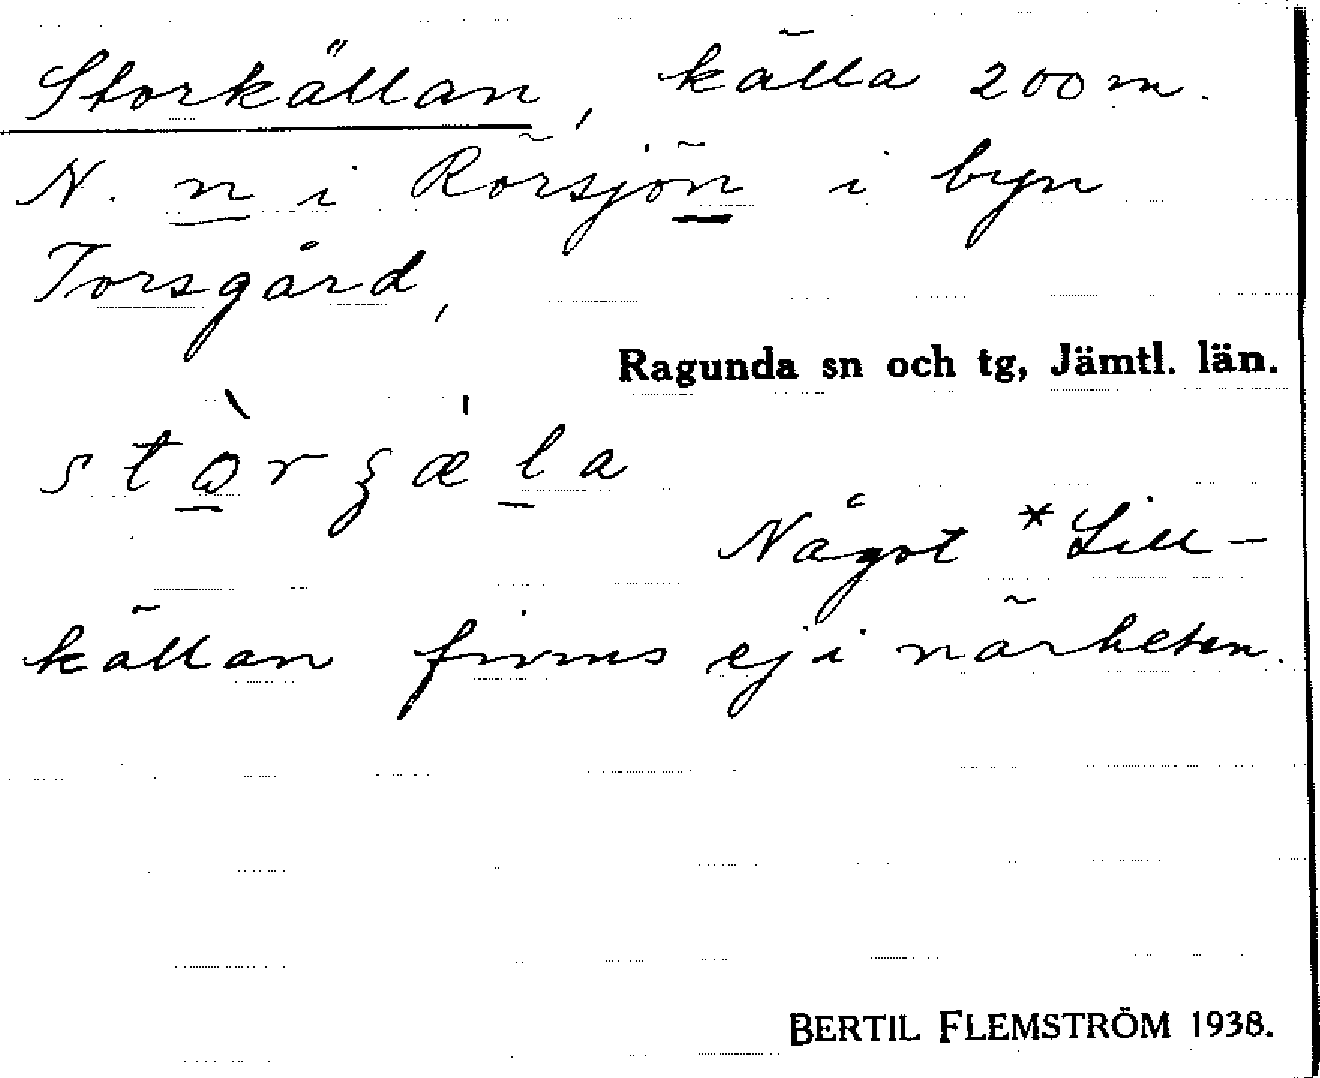 Storkällan, källa 200 m.
N. n i Rörsjön i byn
Torsgård,
Ragunda sn och tg, Jämtl. län.
Något *Lill-
källan finns ej i närheten.
BERTIL FLEMSTRÖM 1938.